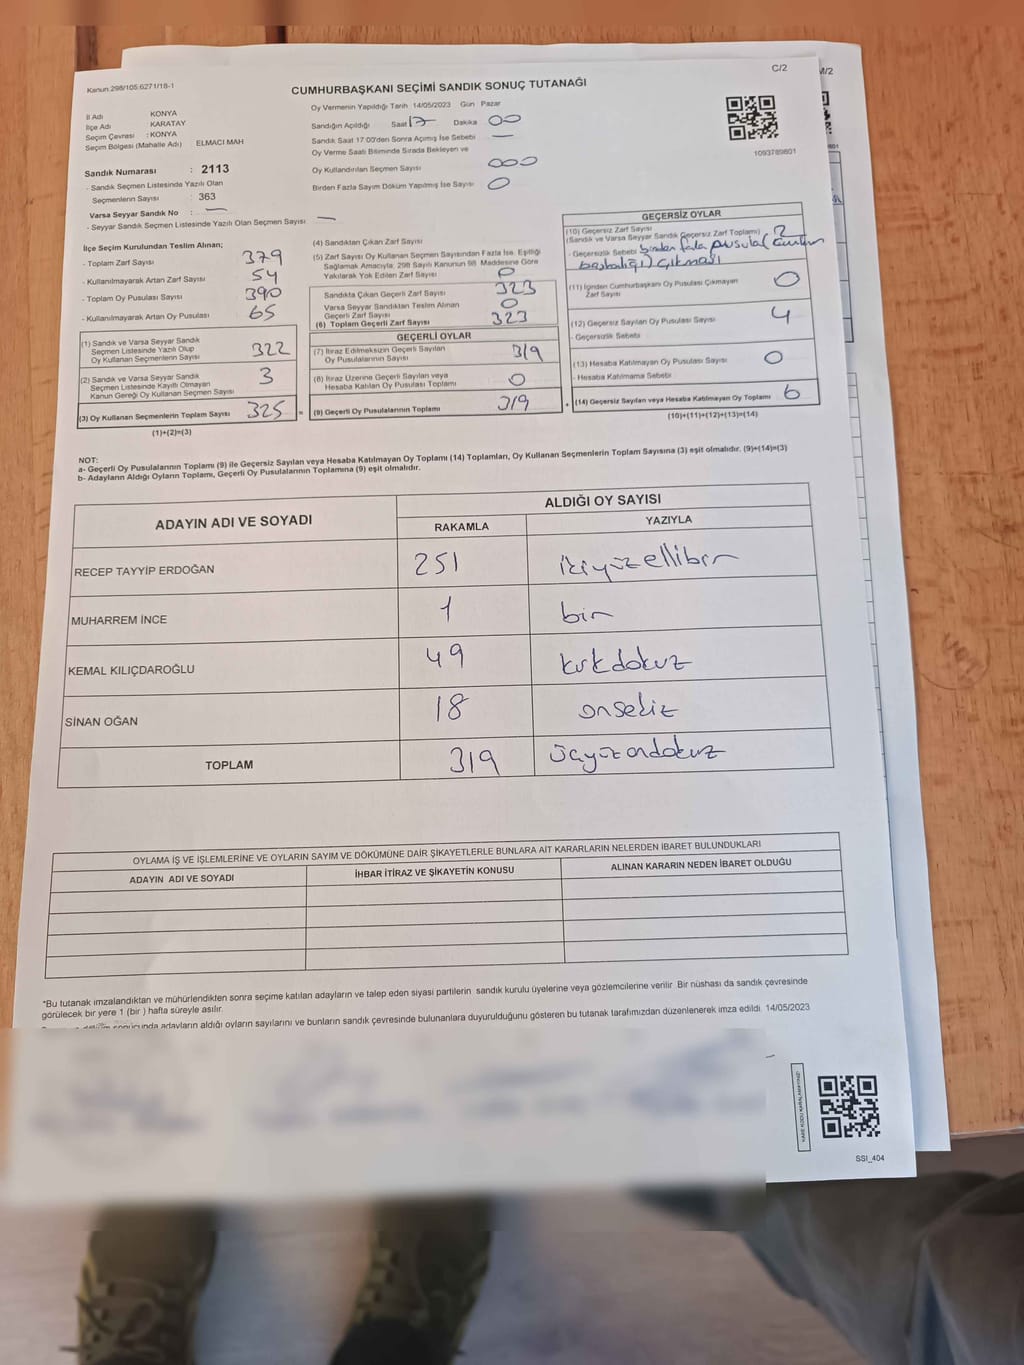 C/2
M/2
Kanun.298/105.6271/18-1
CUMHURBAŞKANI SEÇİMİ SANDIK SONUÇ TUTANAĞI
İl Adı KONYA
İlçe Adı KARATAY
Seçim Çevresi : KONYA
Seçim Bölgesi (Mahalle Adı) ELMACI MAH
Oy Vermenin Yapıldığı Tarih 14/05/2023 Gün Pazar
Sandığın Açıldığı Saat 17 Dakika 00
Sandık Saat 17.00'den Sonra Açımış İse Sebebi —
Oy Verme Saati Bitiminde Sırada Bekleyen ve
Oy Kullandırılan Seçmen Sayısı 000
Birden Fazla Sayım Döküm Yapılmış İse Sayısı 0
1093789801
Sandık Numarası : 2113
- Sandık Seçmen Listesinde Yazılı Olan
Seçmenlerin Sayısı : 363
Varsa Seyyar Sandık No : —
- Seyyar Sandık Seçmen Listesinde Yazılı Olan Seçmen Sayısı —
İlçe Seçim Kurulundan Teslim Alınan;
- Toplam Zarf Sayısı 379
- Kullanılmayarak Artan Zarf Sayısı 54
- Toplam Oy Pusulası Sayısı 390
- Kullanılmayarak Artan Oy Pusulası 65
(1) Sandık ve Varsa Seyyar Sandık
Seçmen Listesinde Yazılı Olup
Oy Kullanan Seçmenlerin Sayısı 322
(2) Sandık ve Varsa Seyyar Sandık
Seçmen Listesinde Kayıtlı Olmayan
Kanun Gereği Oy Kullanan Seçmen Sayısı 3
(3) Oy Kullanan Seçmenlerin Toplam Sayısı 325 =
(1)+(2)=(3)
(4) Sandıktan Çıkan Zarf Sayısı
(5) Zarf Sayısı Oy Kullanan Seçmen Sayısından Fazla İse, Eşitliği
Sağlamak Amacıyla, 298 Sayılı Kanunun 98. Maddesine Göre
Yakılarak Yok Edilen Zarf Sayısı 0
Sandıkta Çıkan Geçerli Zarf Sayısı 323
Varsa Seyyar Sandıktan Teslim Alınan
Geçerli Zarf Sayısı 0
(6) Toplam Geçerli Zarf Sayısı 323
GEÇERLİ OYLAR
(7) İtiraz Edilmeksizin Geçerli Sayılan
Oy Pusulalarının Sayısı 319
(8) İtiraz Üzerine Geçerli Sayılan veya
Hesaba Katılan Oy Pusulası Toplamı 0
(9) Geçerli Oy Pusulalarının Toplamı 319 +
GEÇERSİZ OYLAR
(10) Geçersiz Zarf Sayısı
(Sandık ve Varsa Seyyar Sandık Geçersiz Zarf Toplamı) 2
- Geçersizlik Sebebi birden fazla pusula(
başbalığı) çıkması
(11) İçinden Cumhurbaşkanı Oy Pusulası Çıkmayan
Zarf Sayısı 0
(12) Geçersiz Sayılan Oy Pusulası Sayısı 4
- Geçersizlik Sebebi
(13) Hesaba Katılmayan Oy Pusulası Sayısı 0
- Hesaba Katılmama Sebebi
(14) Geçersiz Sayılan veya Hesaba Katılmayan Oy Toplamı 6
(10)+(11)+(12)+(13)=(14)
NOT:
a- Geçerli Oy Pusulalarının Toplamı (9) ile Geçersiz Sayılan veya Hesaba Katılmayan Oy Toplamı (14) Toplamları, Oy Kullanan Seçmenlerin Toplam Sayısına (3) eşit olmalıdır. (9)+(14)=(3)
b- Adayların Aldığı Oyların Toplamı, Geçerli Oy Pusulalarının Toplamına (9) eşit olmalıdır.
ADAYIN ADI VE SOYADI ALDIĞI OY SAYISI
RAKAMLA YAZIYLA
RECEP TAYYİP ERDOĞAN 251 ikiyüzellibir
MUHARREM İNCE 1 bir
KEMAL KILIÇDAROĞLU 49 kırkdokuz
SİNAN OĞAN 18 onsekiz
TOPLAM 319 üçyüzondokuz
OYLAMA İŞ VE İŞLEMLERİNE VE OYLARIN SAYIM VE DÖKÜMÜNE DAİR ŞİKAYETLERLE BUNLARA AİT KARARLARIN NELERDEN İBARET BULUNDUKLARI
ADAYIN ADI VE SOYADI İHBAR İTİRAZ VE ŞİKAYETİN KONUSU ALINAN KARARIN NEDEN İBARET OLDUĞU
*Bu tutanak imzalandıktan ve mühürlendikten sonra seçime katılan adayların ve talep eden siyasi partilerin sandık kurulu üyelerine veya gözlemcilerine verilir. Bir nüshası da sandık çevresinde
görülecek bir yere 1 (bir ) hafta süreyle asılır.
sonucunda adayların aldığı oyların sayılarını ve bunların sandık çevresinde bulunanlara duyurulduğunu gösteren bu tutanak tarafımızdan düzenlenerek imza edildi. 14/05/2023
SSI_404